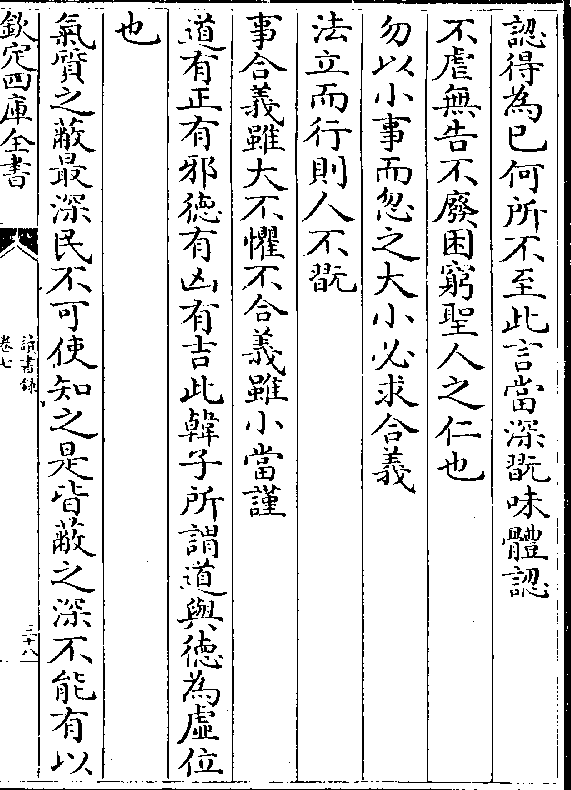 認得為已何所不至此言當深翫味體認
不虐無告不廢困窮聖人之仁也
勿以小事而忽之大小必求合義
法立而行則人不翫
事合義雖大不懼不合義雖小當謹
道有正有邪徳有凶有吉此韓子所謂道與徳為虛位
也
氣質之蔽最深民不可使知之是皆蔽之深不能有以
欽定四庫全書
讀書録
卷七
三十八